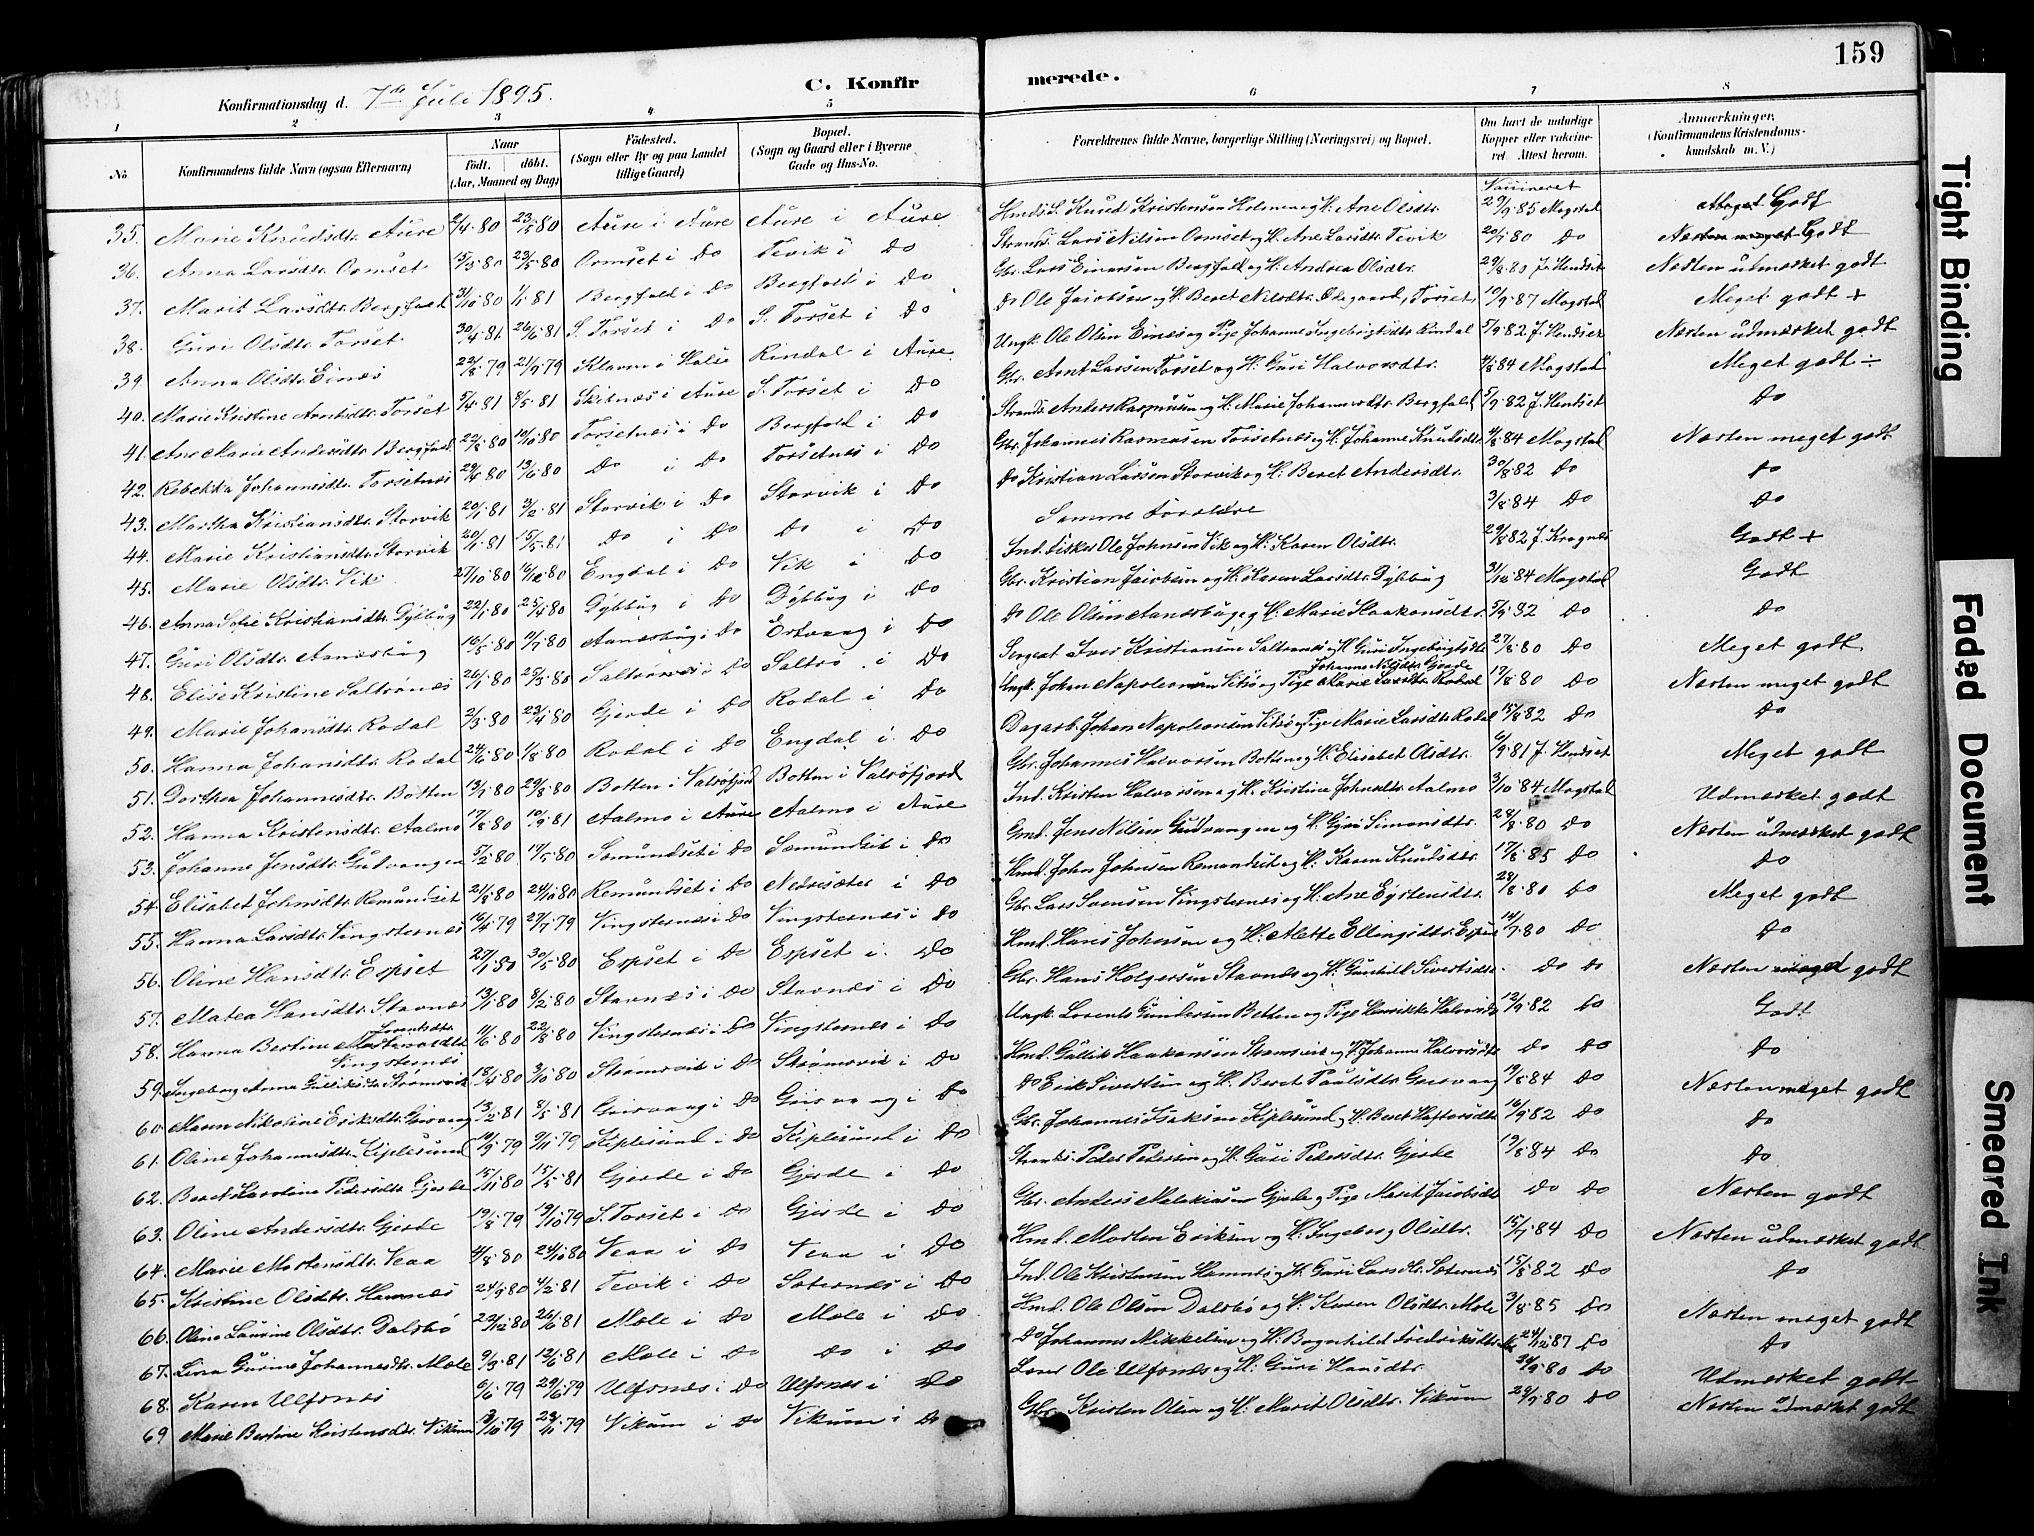 159
Konfirmationsdag d. 7de Juli 1895. C. Konfirmerede.
1 2 3 4 5 6 7 8
No. Konfirmandens fulde Navn (ogsaa Efternavn) Naar født. døbt. (Aar, Maaned og Dag) Fødested. (Sogn eller By og paa Landet tillige Gaard) Bopæl. (Sogn og Gaard eller i Byerne Gade og Hus-No. Forældrenes fulde Navne, borgerlige Stilling (Næringsvei) og Bopæl. Om havt de naturlige Kopper eller vakcineret. Attest herom. Anmærkninger. (Konfirmandens Kristendomskundskab m. V.)
35. Marie Knudsdtr. Aure 2/4 80 23/5 80 Aure i Aure Aure i Aure Hmds. S. Knud Kristensen Holmen og H. Ane Olsdtr. Vaccineret 29/9 85 Mogstad Meget Godt
36. Anna Larsdtr. Ormset 15/3 80 23/5 80 Ormset i Do Tevik i Do Strands. Lars Nilsen Ormset og H. Ane Larsdtr. Tevik 20/7 80 Do Næsten meget Godt
37. Marit Larsdtr. Bergfald 31/10 80 1/1 81 Bergfald i Do Bergfald i Do Gbr. Lars Einarsen Bergfald og H. Andrea Olsdtr. 29/8 80 J. Hendset Næsten udmærket godt
38. Guri Olsdtr. Torset 30/4 81 26/6 81 S. Torset i Do S. Torset i Do Do Ole Jacobsen og H. Beret Nilsdtr. Ødegaard, Torset 10/9 87 Mogstad Meget godt +
39. Anna Olsdtr. Einæs 22/8 79 21/9 79 Klavnes i Halse Rindal i Aure Ungk. Ole Olsen Einæs og Pige Johanne Ingebrigtsdtr. Rindal 5/9 82 J. Hendset Næsten udmærket godt
40. Marie Kristine Arntsdtr. Torset 5/4 81 8/5 81 Skitnæs i Aure S. Torset i Do Gbr. Arnt Larsen Torset og H. Guri Halvorsdtr. 4/8 84 Mogstad Meget godt ÷
41. Ane Marie Andersdtr. Bergfald 22/8 80 10/10 80 Torsetnæs i Do Bergfald i Do Strands. Anders Rasmusen og H. Marie Johannesdtr. Bergfald 5/9 82 J. Hendset Do
42. Rebekka Johannesdtr. Torsetnæs 29/4 80 13/6 80 Do i Do Torsetnæs i Do Gbr. Johannes Rasmusen Torsetnæs og H. Johanne Knudsdtr. 4/8 84 Mogstad Næsten meget godt
43. Martha Kristiansdtr. Storvik 20/1 81 3/2 81 Storvik i Do Storvik i Do Do Kristian Larsen Storvik og H. Beret Andersdtr. 30/8 82 Do Do
44. Marie Kristiansdtr. Storvik 20/1 81 15/5 81 Do i Do Do i Do Samme Forældre 3/8 84 Do Do
45. Marie Olsdtr. Vik 27/10 80 16/12 80 Engdal i Do Vik i Do Ind. Fisker Ole Johnsen Vik og H. Karen Olsdtr. 29/8 82 J. Krognes Godt +
46. Anna Sofie Kristiansdtr. Dybbug 22/1 80 25/4 80 Dybbug i Do Dybbug i Do Gbr. Kristian Jacobsen og H. Karen Larsdtr. Dybbug 31/12 84 Mogstad Godt
47. Guri Olsdtr. Aanæsbug 16/5 80 9/7 80 Aanæsbug i Do Ertvaag i Do Do Ole Olsen Aanæsbug og H. Marie Haakensdtr. 5/9 82 Do Do
48. Elise Kristine Saltrønæs 26/1 80 25/3 80 Saltrønæs i Do Saltrø i Do Sergeat Iver Kristiansen Saltrønæs og H. Guri Ingebrigtsdtr. 27/8 80 Do Meget godt
49. Marie Johansdtr. Rodal 2/3 80 23/4 80 Gjerde i Do Rodal i Do Ungk. Johan Napoleonsen og Pige Johanna Nilsdtr. Gjerde Marie Larsdtr. Rodal 17/8 80 Do Næsten meget godt
50. Hanna Johansdtr. Rodal 24/6 80 1/8 80 Rodal i Do Engdal i Do Dagarb. Johan Napoleonsen og Pige Marie Larsdtr. Rodal 15/8 82 Do Do
51. Dorthea Johannesdtr. Botten 13/7 80 29/8 80 Botten i Valsøfjord Botten i Valsøfjord Gbr. Johannes Halvorsen Botten og H. Elisabet Olsdtr. 6/9 81 J. Hendset Meget godt
52. Hanna Kristensdtr. Aalmo 17/8 80 10/9 81 Aalmo i Aure Aalmo i Aure Ind. Kristen Halvorsen og H. Kristine Johnsdtr. Aalmo 3/10 84 Mogstad Udmærket godt
53. Johanne Jensdtr. Gulvangen 5/2 80 17/5 80 Sæmundset i Do Sæmundset i Do Gmd. Jens Nilsen Gulvangen og H. Guri Simonsdtr. 28/8 80 Do Næsten udmærket godt
54. Elisabet Johnsdtr. Remundset 21/8 80 24/10 80 Remundset i Do Nedresæter i Do Hmd. John Johnsen Remundset og H. Karen Knudsdtr. 17/8 85 Do Do
55. Hanna Larsdtr. Vingsternæs 16/4 79 27/7 79 Vingsternæs i Do Vingsternæs i Do Gbr. Lars Svensen Vingsternæs og H. Ane Eystensdtr. 28/8 80 Do Meget godt
56. Oline Hansdtr. Espset 27/1 80 30/5 80 Espset i Do Espset i Do Hmd. Hans Johnsen og H. Mette Ellingsdtr. Espset 14/7 80 Do Do
57. Matea Hansdtr. Stavnæs 13/1 80 8/2 80 Stavnæs i Do Stavnæs i Do Gbr. Hans Holgersen Stavnæs og H. Gunhild Sivertsdtr. Do Do Næsten meget godt
58. Hanna Bertine Lorentsdtr. Vingsternæs 11/6 80 22/8 80 Vingsternæs i Do Vingsternæs i Do Ungk. Lorents Gundersen Betten og Pige Henrikke Halvorsdtr. 12/9 82 Do Godt
59. Ingeborg Anna Gulliksdtr. Strømsvik 18/4 80 3/10 80 Strømsvik i Do Strømsvik i Do Hmd. Gullik Haakensen Strømsvik og H. Johanna Halvorsdtr. Do Do Do
60. Maren Nikoline Eriksdtr. Grisvaag 13/2 81 8/5 81 Grisvaag i Do Grisvaag i Do Do Erik Sivertsen og H. Beret Paulsdtr. Grisvaag 19/8 84 Do Næsten meget godt
61. Oline Johannesdtr. Kiplesund 10/9 79 9/11 79 Kiplesund i Do Kiplesund i Do Gbr. Johannes Isaksen Kiplesund og H. Beret Haftorsdtr. 16/9 82 Do Do
62. Beret Karoline Pedersdtr. Gjerde 15/11 80 15/5 81 Gjerde i Do Gjerde i Do Strands. Peder Pedersen og H. Guri Pedersdtr. Gjerde 19/8 84 Do Do
63. Oline Andersdtr. Gjerde 19/8 79 19/10 79 S. Torset i Do Gjerde i Do Gbr. Anders Malakiasen Gjerde og Pige Marit Jacobsdtr. Do Do Næsten godt
64. Marie Mortensdtr. Veaa 4/8 80 24/10 80 Veaa i Do Veaa i Do Hmd. Morten Eriksen og H. Ingeborg Olsdtr. 15/7 84 Do Næsten udmærket godt
65. Kristine Olsdtr. Hamnæs 24/9 80 4/2 81 Tevik i Do Sæternæs i Do Ind. Ole Kristensen Hamnæs og H. Guri Larsdtr. Sæternæs 15/8 82 Do Do
66. Olina Laurine Olsdtr. Dalsbø 23/12 80 26/6 81 Mæle i Do Mæle i Do Hmd. Ole Olsen Dalsbø og H. Karen Olsdtr. Mæle 3/8 85 Do Næsten meget godt
67. Lina Gurine Johannesdtr. Mæle 9/3 81 12/6 81 Mæle i Do Do i Do Do Johannes Mikkelsen og H. Bergenhild Fredriksdtr. 24/12 87 Do Do
68. Karen Ulfsnæs 6/6 79 29/6 79 Ulfsnæs i Do Ulfsnæs i Do Ole Ulfsnæs og H. Guri Hansdtr. 24/9 80 Do Udmærket godt
69 Marie Bertine Kristensdtr. Vikum 3/10 79 23/11 79 Vikum i Do Vikum i Do Gbr. Kristen Olsen og H. Marit Olsdtr. Vikum 29/9 80 Do Næsten udmærket godt
Tight Binding
Faded Document
Smeared Ink